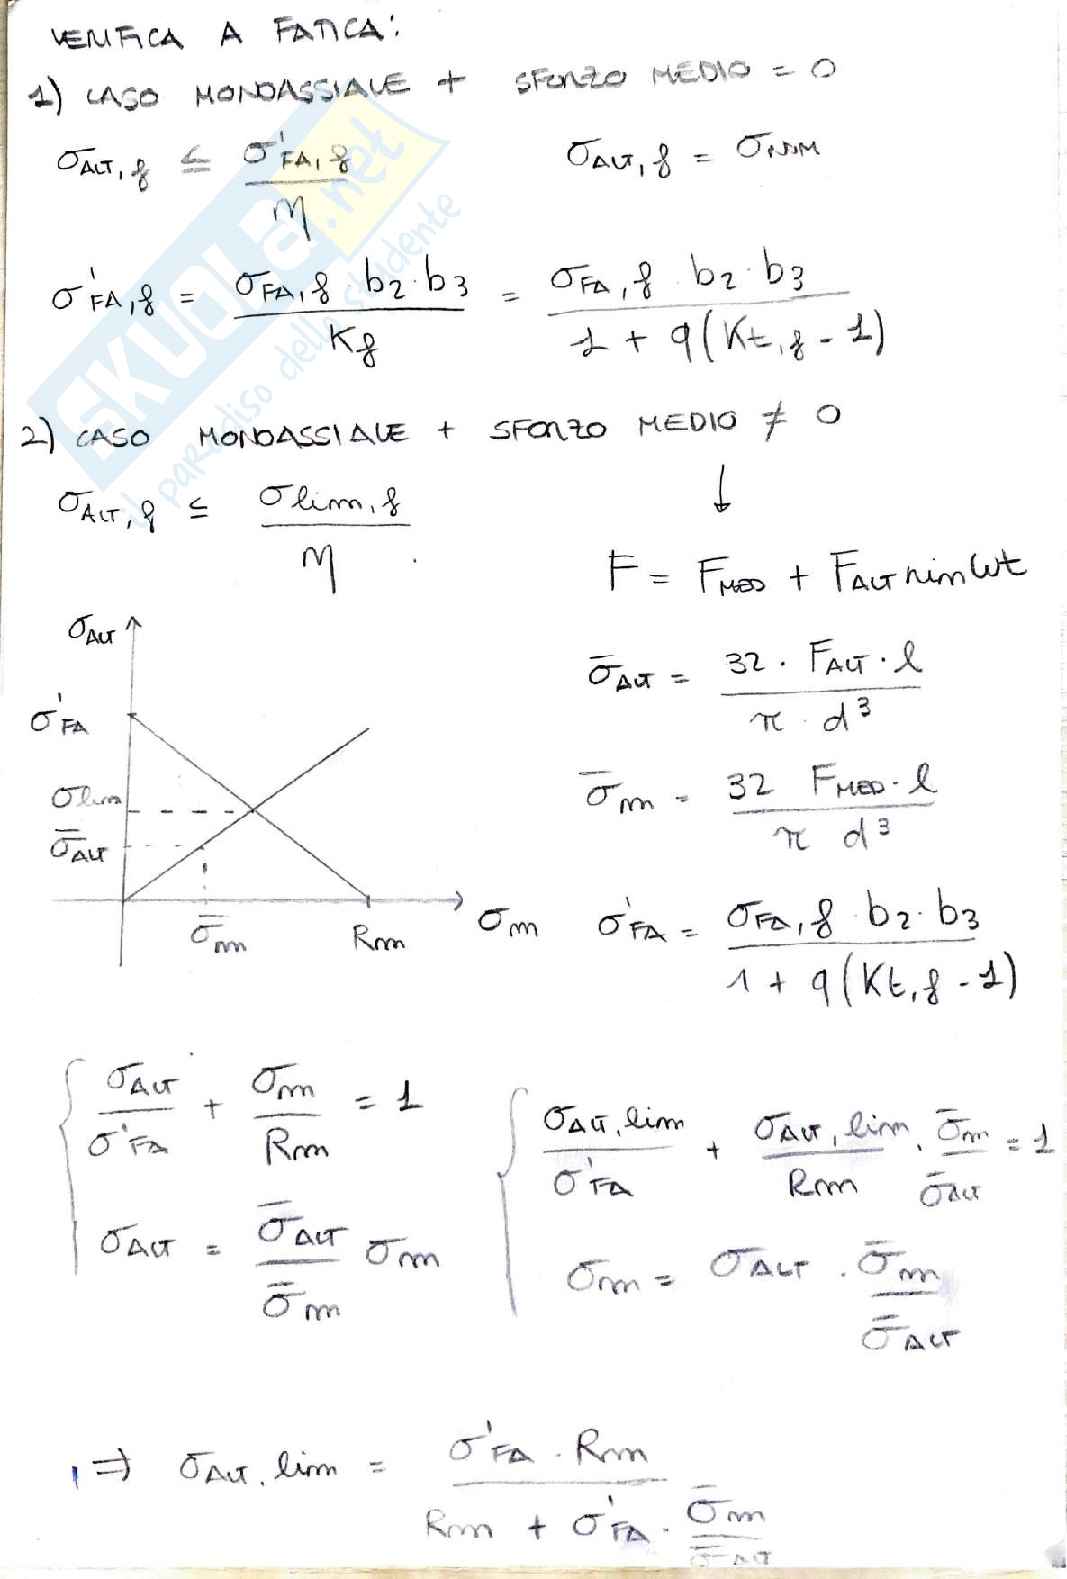 VERIFICA A FATICA:
1) CASO MONOASSIALE + SFORZO MEDIO = 0
σALT,f ≤ σ'FA,f / η    σALT,f = σNOM
σ'FA,f = σFA,f · b2 · b3 / Kf = σFA,f b2 · b3 / 1 + q(Kt,f - 1)
2) CASO MONOASSIALE + SFORZO MEDIO ≠ 0
σALT,f ≤ σlim,f / η    ↓
F = FMED + FALT sin ωt
σALT
σ̄ALT = 32 · FALT · l / π · d³
σ'FA
σlim
σ̄m = 32 FMED · l / π d³
σ̄ALT
σ̄m    Rm    σm
σ'FA = σFA,f b2 · b3 / 1 + q(Kt,f - 1)
σALT / σ'FA + σm / Rm = 1
σALT = σ̄ALT / σ̄m σm
σALT,lim / σ'FA + σALT,lim / Rm · σ̄m / σ̄ALT = 1
σm = σALT · σ̄m / σ̄ALT
⇒ σALT,lim = σ'FA · Rm / Rm + σ'FA · σ̄m / σ̄ALT
SKUOLA.net
il paradiso dello studente